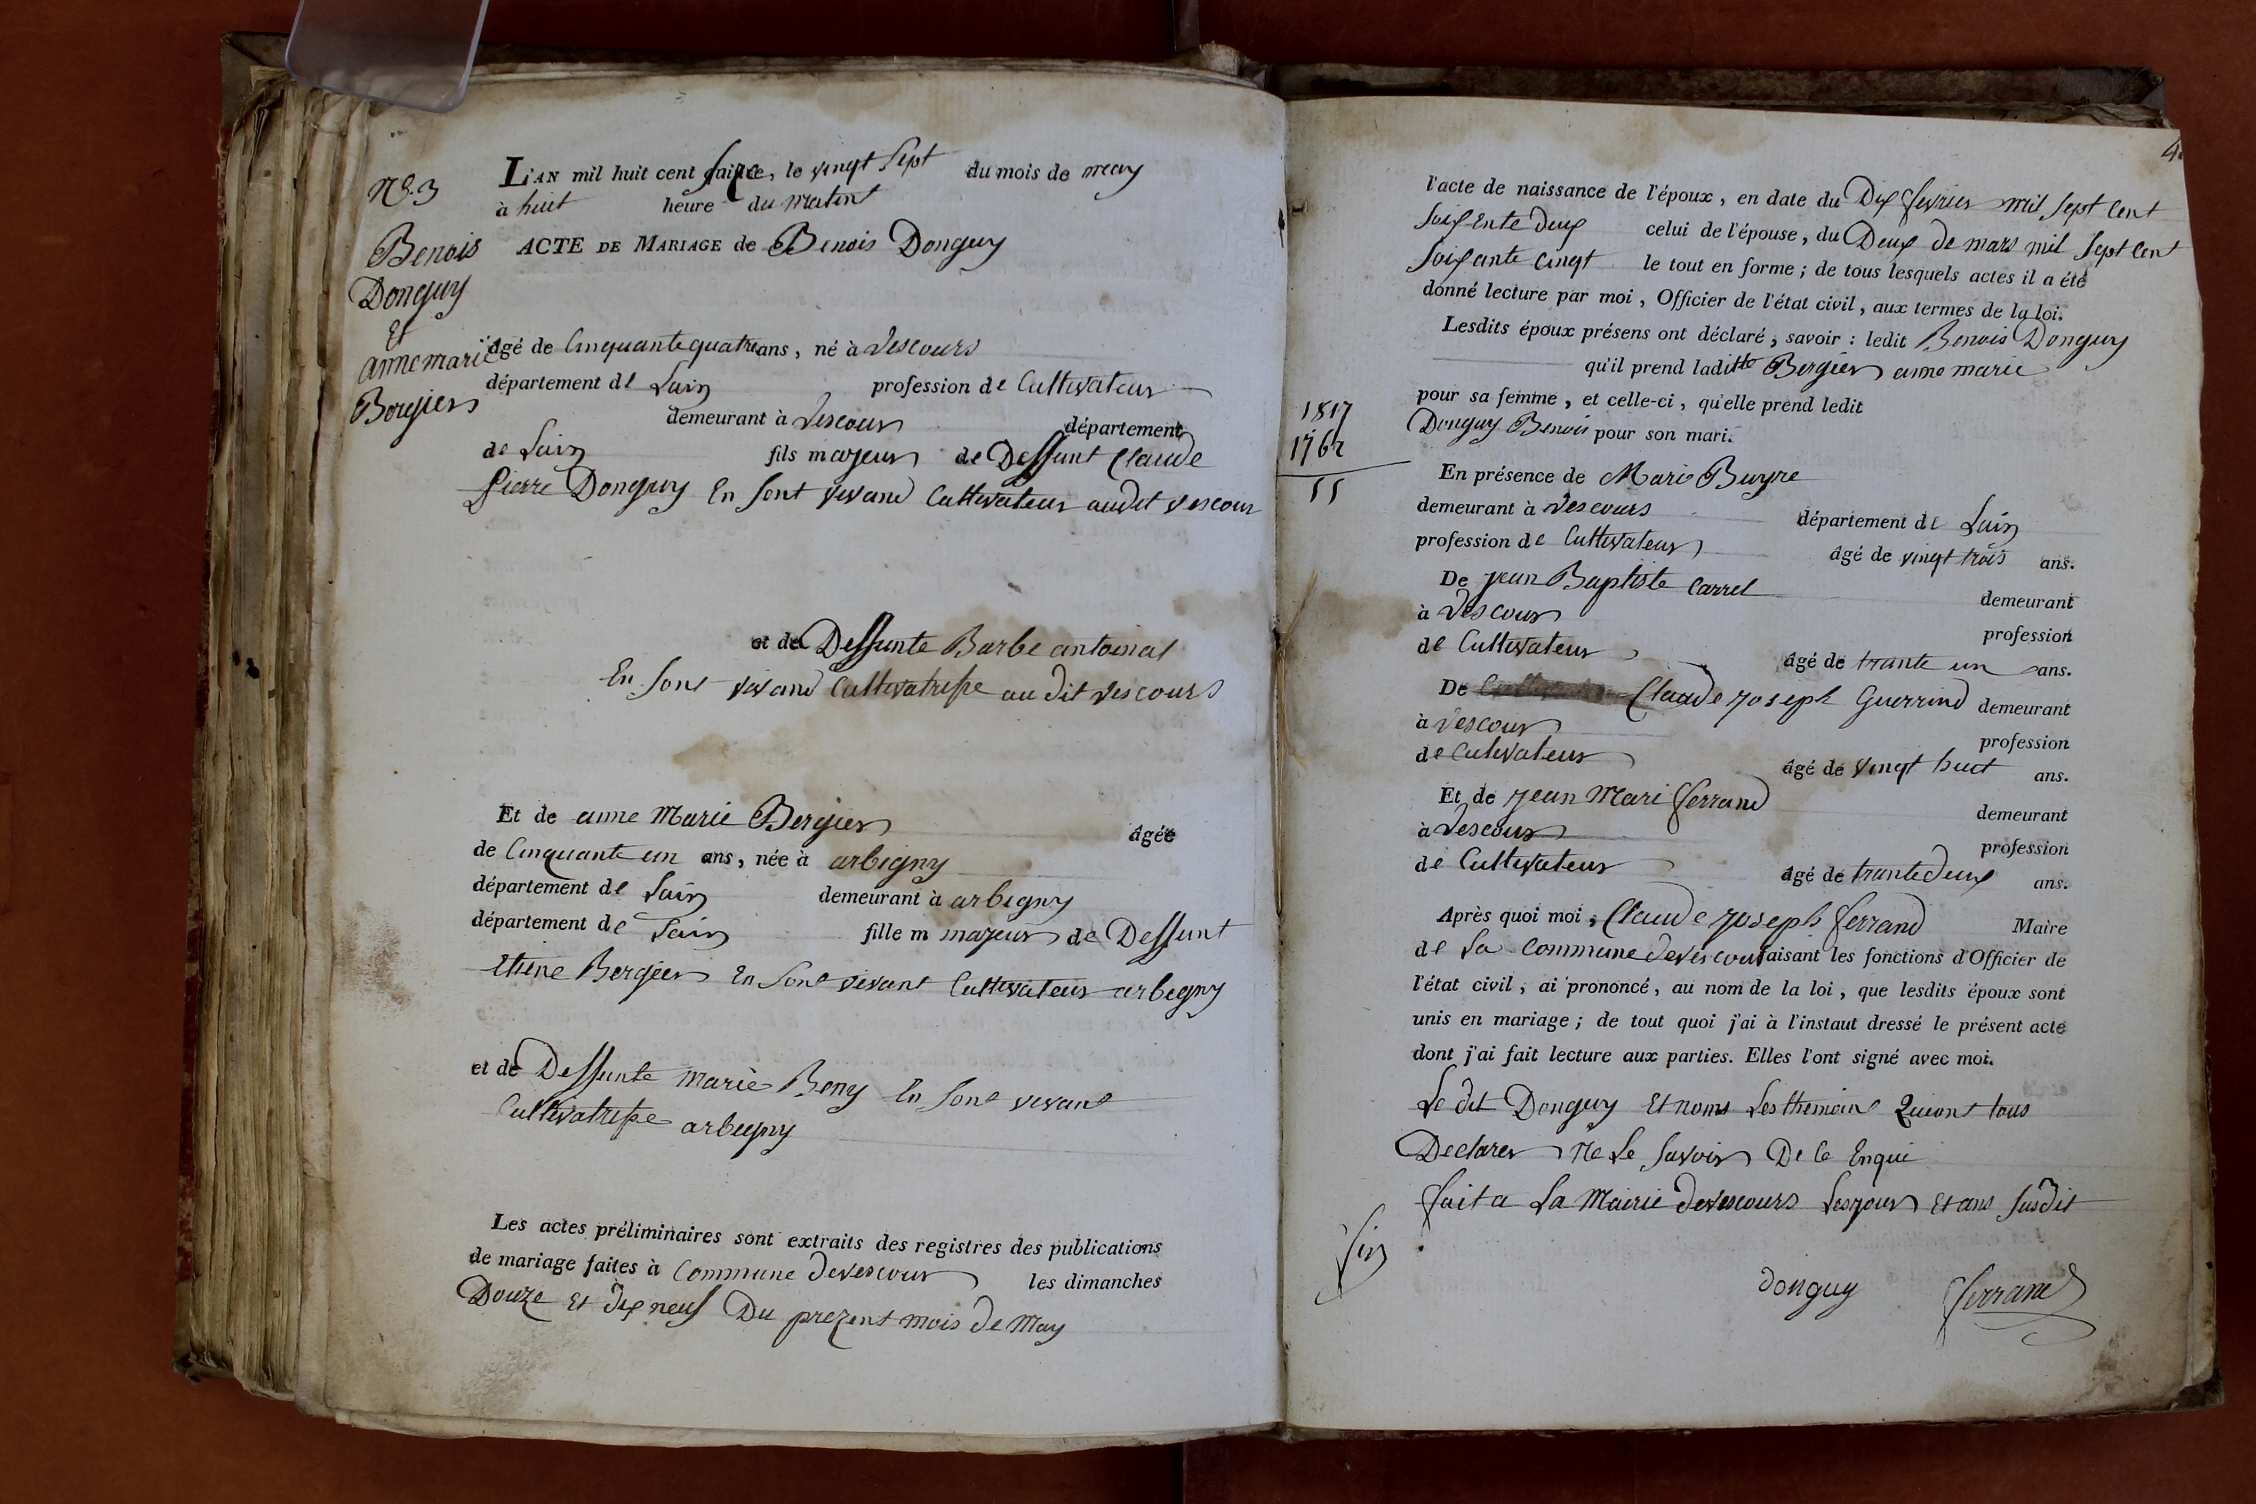 N°. 3
Benois
Donguy
Et
anne marie
Bergier
L'AN mil huit cent saize, le vingt sept du mois de may
à huit heure du matin
ACTE DE MARIAGE de Benois Donguy
âgé de Cinquante quatre ans, né à Vescours
département de Lain profession de Cultivateur
demeurant à Vescour département
de Lain fils majeur de Deffunt Claude
Pierre Donguy En sont vivand Cultivateur audit Vescour
et de Deffunte Barbe antoinat
En sont vivand Cultivatrisse au dit Vescours
Et de anne Marie Bergier âgée
de Cinquante un ans, née à arbigny
département de Lain demeurant à arbigny
département de Lain fille m majeur de Deffunt
Etiene Bergier En sont vivant Cultivateur arbigny
et de Deffunte Marie Beny En sont vivant
Cultivatrisse arbigny
Les actes préliminaires sont extraits des registres des publications
de mariage faites à Commune de Vescour les dimanches
Douze Et dix neuf Du prezent mois de May
l'acte de naissance de l'époux, en date du Dix fevrier mil sept cent
soixente deux celui de l'épouse, du Deux de mars mil sept cent
soixante cinqt le tout en forme ; de tous lesquels actes il a été
donné lecture par moi, Officier de l'état civil, aux termes de la loi.
Lesdits époux présens ont déclaré, savoir : ledit Benois Donguy
qu'il prend laditte Bergier anne marie
pour sa femme, et celle-ci, qu'elle prend ledit
Donguy Benois pour son mari.
1817
1762
55
En présence de Marie Buyre
demeurant à Vescours département de Lain
profession de Cultivateur âgé de vingt trois ans.
De jean Baptiste Carrel demeurant
à Vescour profession
de Cultivateur âgé de trante un ans.
De Claude joseph Guerrind demeurant
à Vescour profession
de Cutivateur âgé de vingt huit ans.
Et de jean Mari ferrand demeurant
à Vescour profession
de Cultivateur âgé de trante deux ans.
Après quoi moi, Claude joseph ferrand Maire
de La Commune de Vescour faisant les fonctions d'Officier de
l'état civil, ai prononcé, au nom de la loi, que lesdits époux sont
unis en mariage ; de tout quoi j'ai à l'instaut dressé le présent acte
dont j'ai fait lecture aux parties. Elles l'ont signé avec moi.
Le dit Donguy Et noms Les themoins Qui ont tous
Declarer Ne Le savoir De Ce Enqui
fait a La Mairie de Vescours Les jour Et ans susdit
fin
donguy ferrand